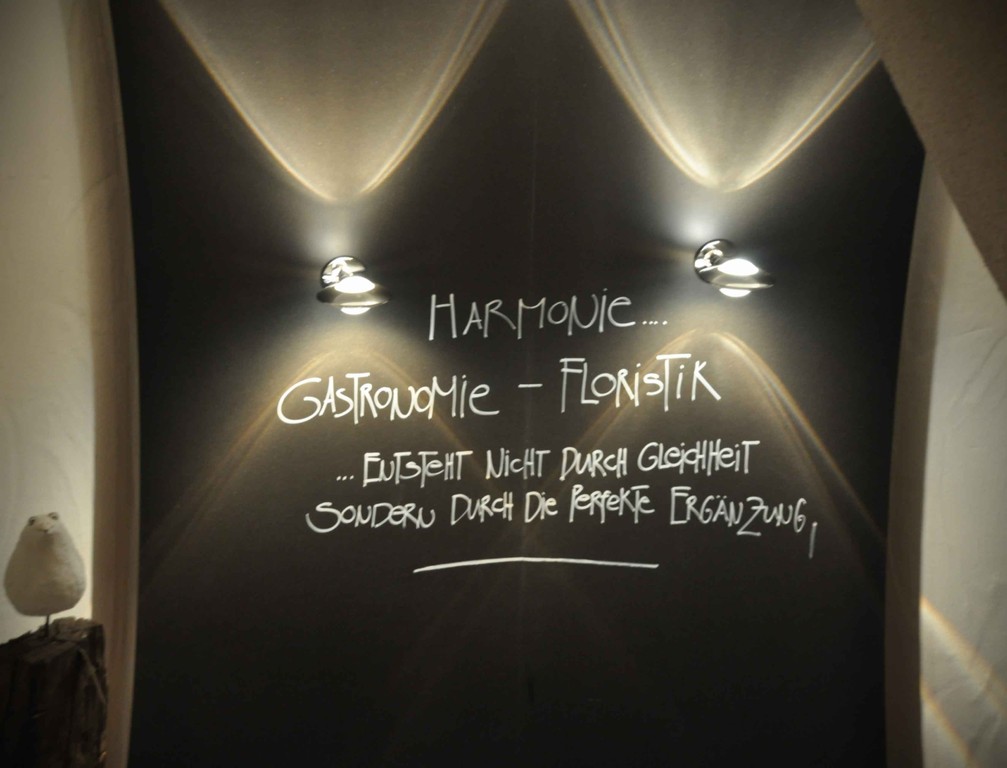 HARMONIE....
GASTRONOMIE - FLORISTIK
...ENTSTEHT NICHT DURCH GLEICHHEIT
SONDERN DURCH DIE PERFEKTE ERGÄNZUNG,